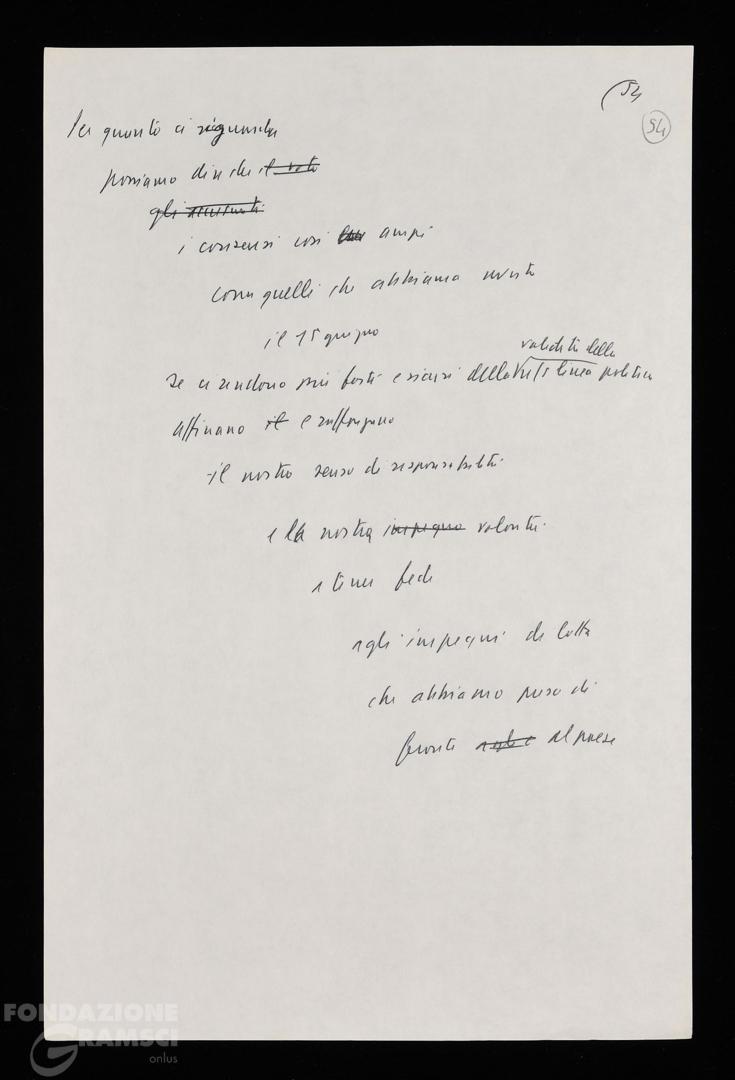 54
54
Per quanto ci riguarda
possiamo dire che il voto
gli
i consensi così ampi
come quelli che abbiamo avuto
il 15 giugno
validità della
se ci rendono più forti e sicuri della ns/ linea politica
affinano il e rafforzano
il nostro senso di responsabilità
e la nostra impegno volontà
a tener fede
agli impegni di lotta
che abbiamo preso di
fronte al paese
FONDAZIONE
GRAMSCI
onlus